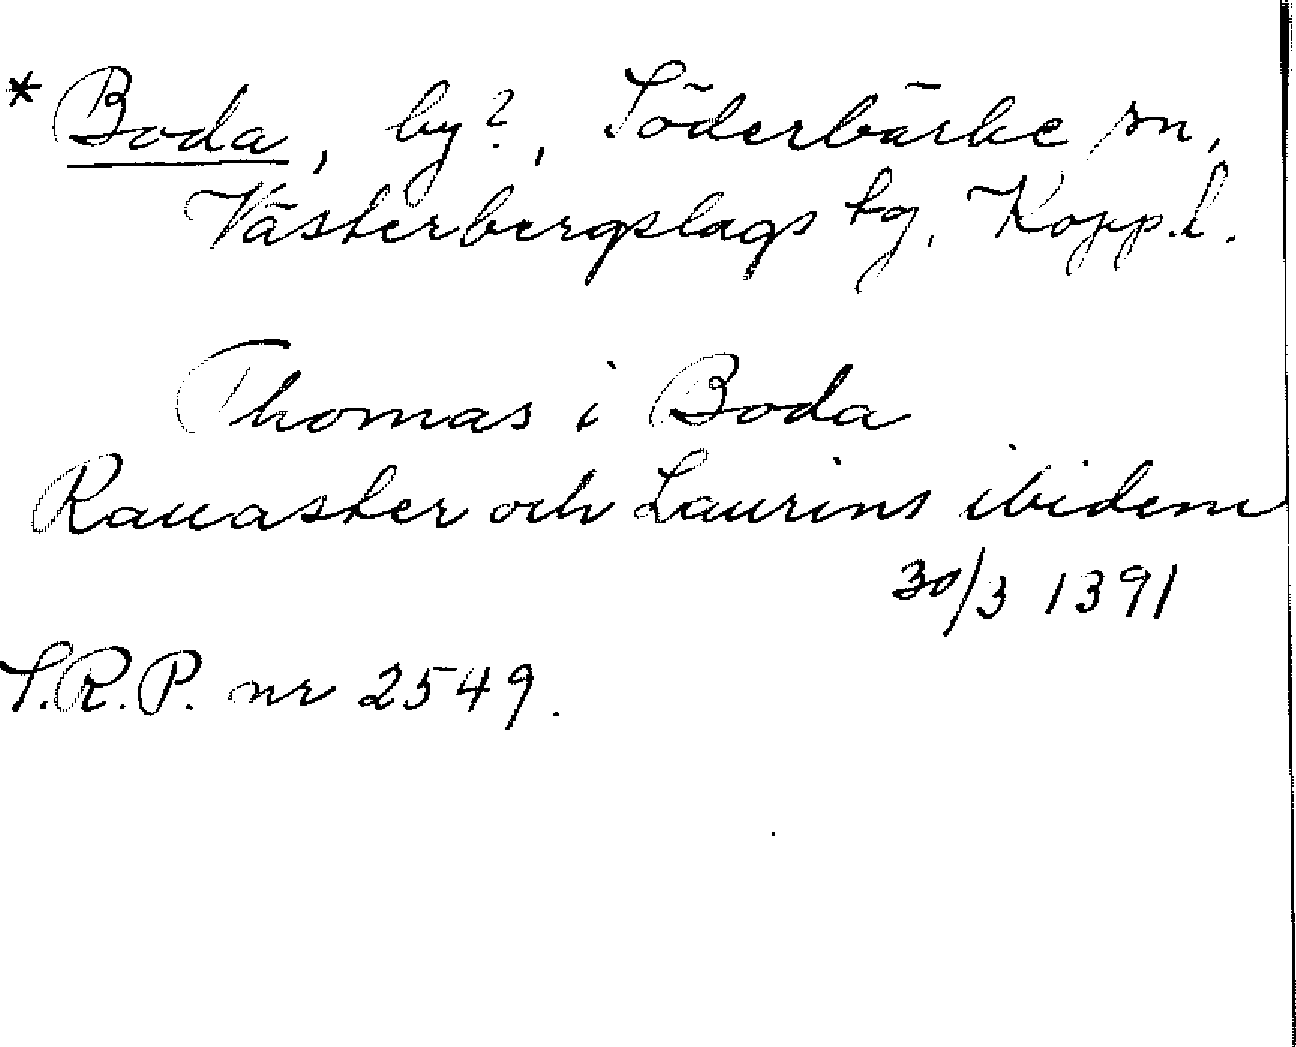 * Boda, by?, Söderbärke sn,
Västerbergslags tg, Kopp.l.
Thomas i Boda
Rauaster och Laurins ibidem
30/3 1391
S.R.P. nr 2549.